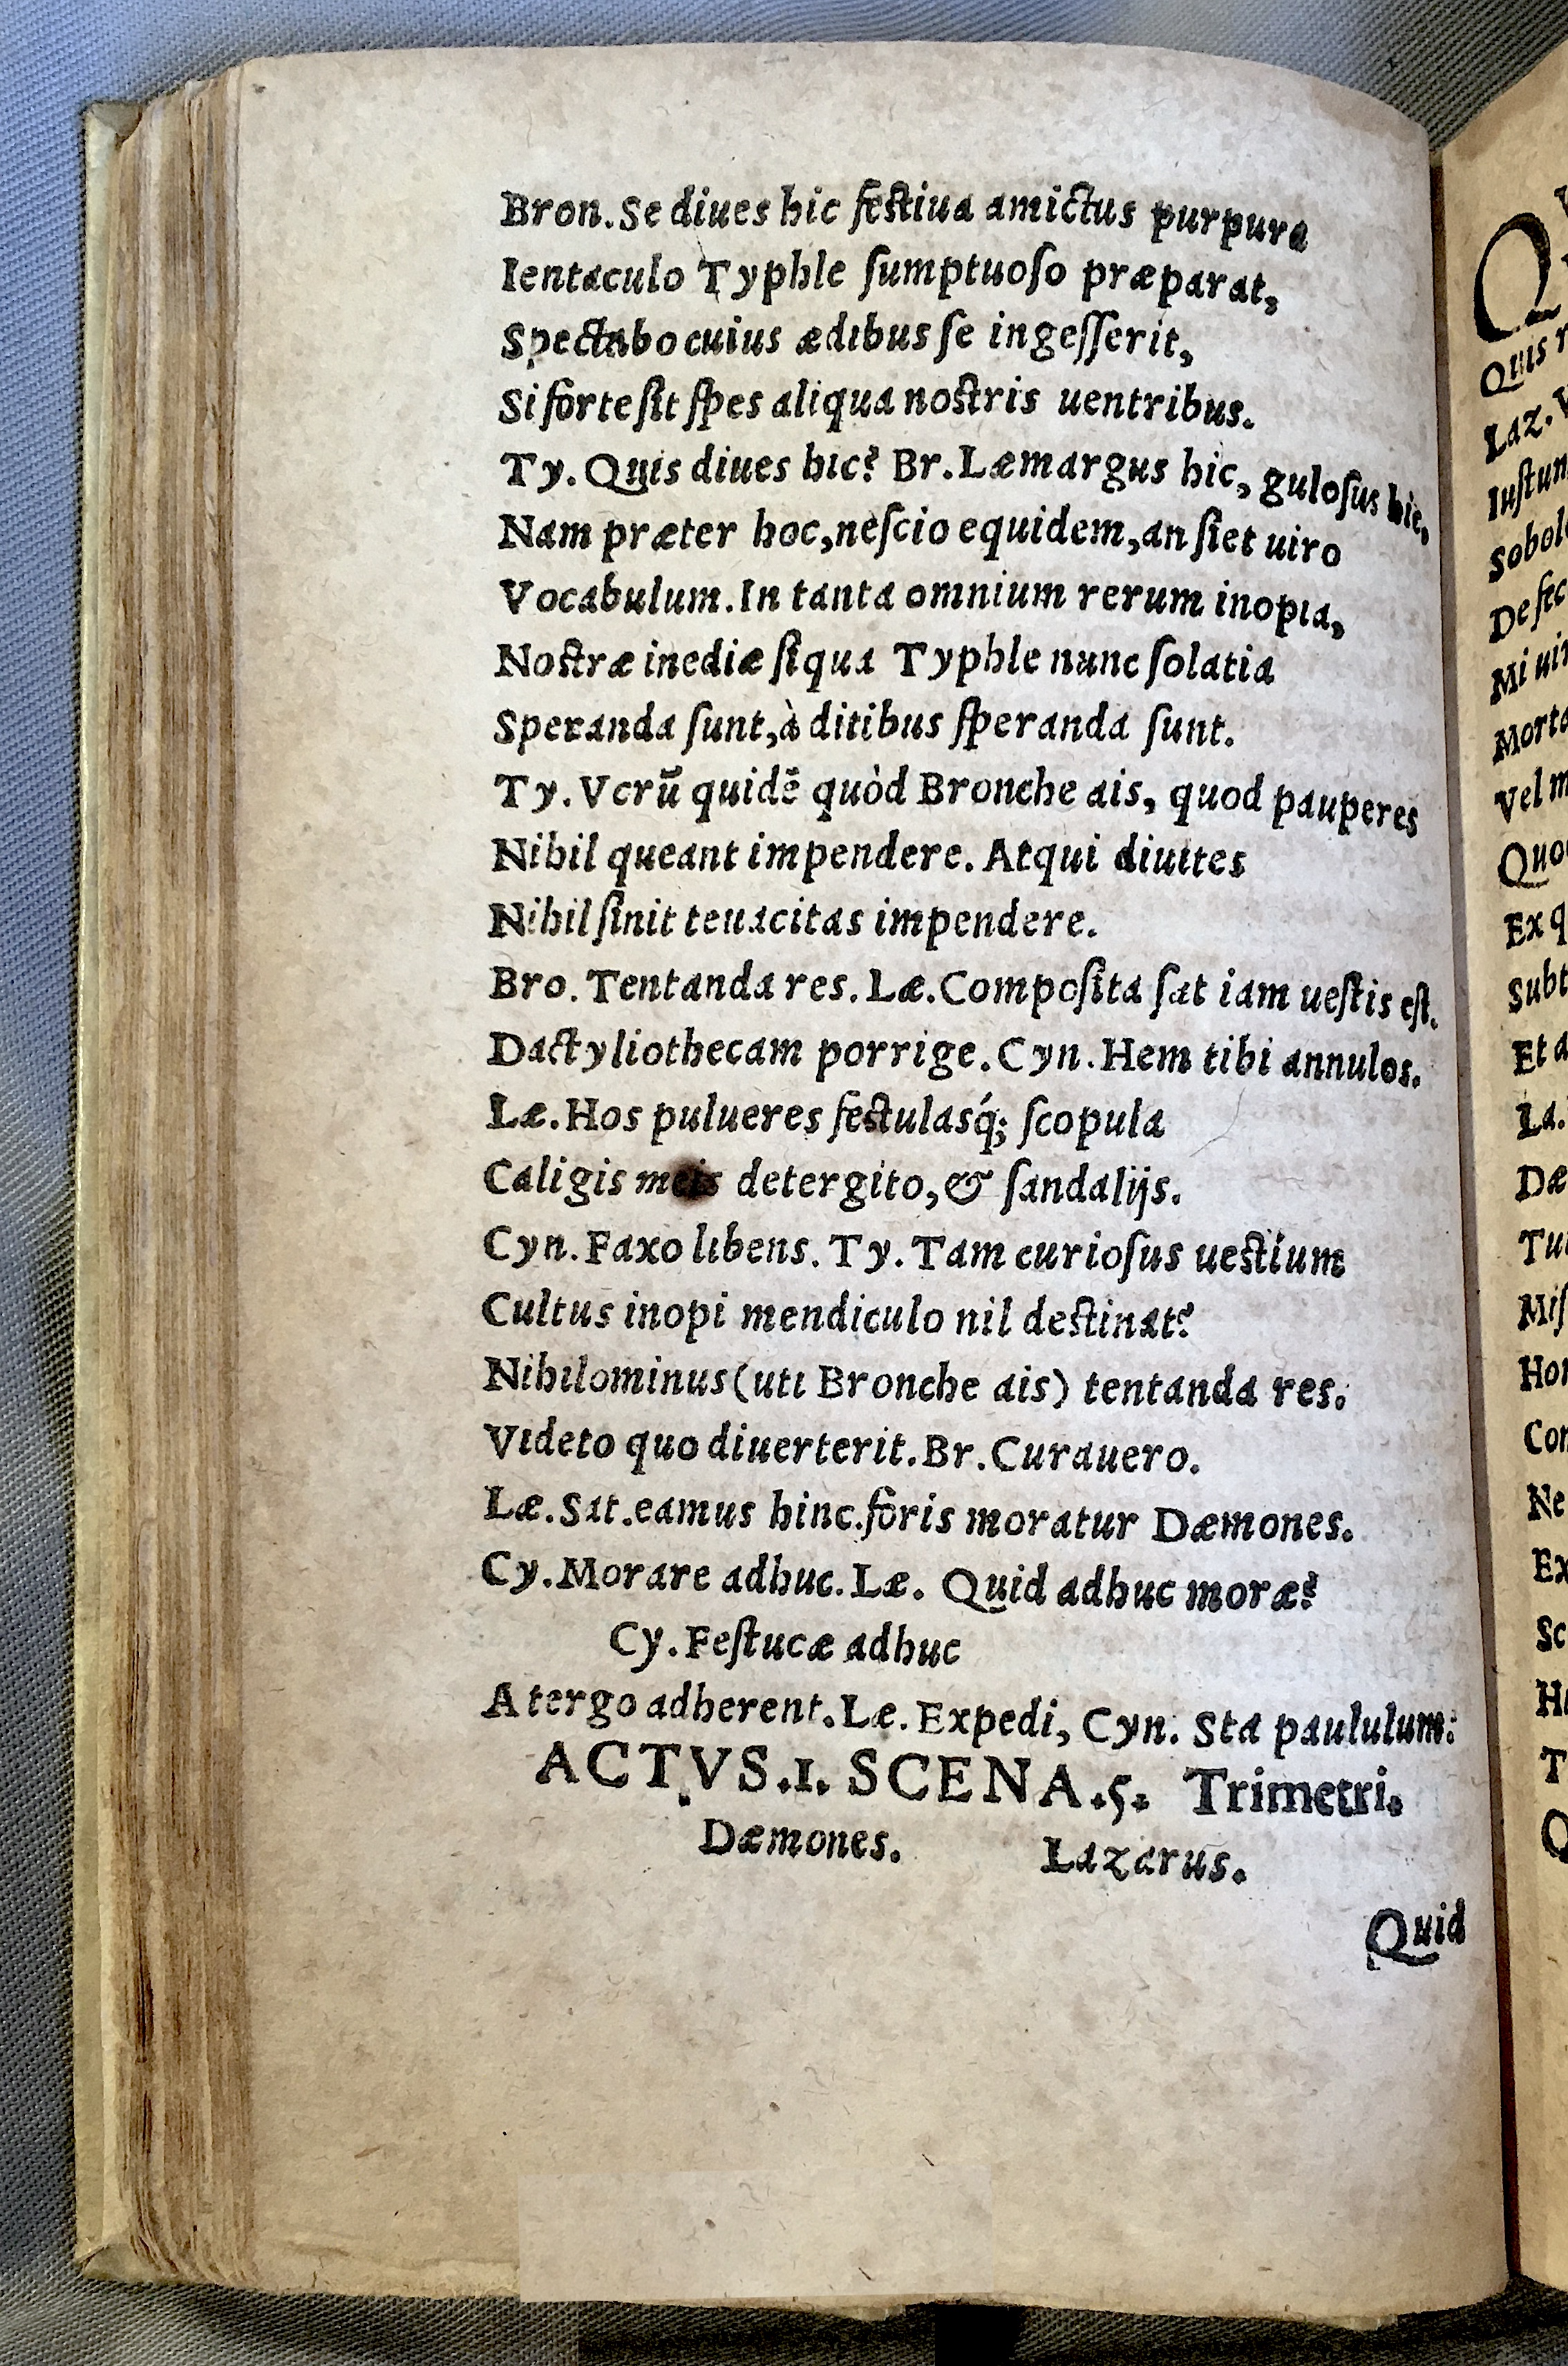 Bron. Se diues hic feſtiua amictus purpura
Ientaculo Typhle ſumptuoſo præparat,
Spectabo cuius ædibus ſe ingeſſerit,
Si forte ſit ſpes aliqua noſtris uentribus.
Ty. Quis diues hic? Br. Læmargus hic, guloſus hic,
Nam præter hoc, neſcio equidem, an ſiet uiro
Vocabulum. In tanta omnium rerum inopia,
Noſtræ inediæ ſiqua Typhle nunc ſolatia
Speranda ſunt, à ditibus ſperanda ſunt.
Ty. Verũ quidẽ quòd Bronche ais, quod pauperes
Nihil queant impendere. Atqui diuites
Nihil ſinit teuacitas impendere.
Bro. Tentanda res. Læ. Compoſita ſat iam ueſtis eſt.
Dactyliothecam porrige. Cyn. Hem tibi annulos.
Læ. Hos pulueres feſtulasq́; ſcopula
Caligis meis detergito, & ſandalijs.
Cyn. Faxo libens. Ty. Tam curioſus ueſtium
Cultus inopi mendiculo nil deſtinat?
Nihilominus (uti Bronche ais) tentanda res.
Videto quo diuerterit. Br. Curauero.
Læ. Sat. eamus hinc. foris moratur Dæmones.
Cy. Morare adhuc. Læ. Quid adhuc moræ?
Cy. Feſtucæ adhuc
A tergo adherent. Læ. Expedi, Cyn. Sta paululum.
ACTVS .I. SCENA .5. Trimetri.
Dæmones. Lazarus.
Quid
Q
Quis
Laz.
Mi
Vel
Ex
Et
La.
Ne